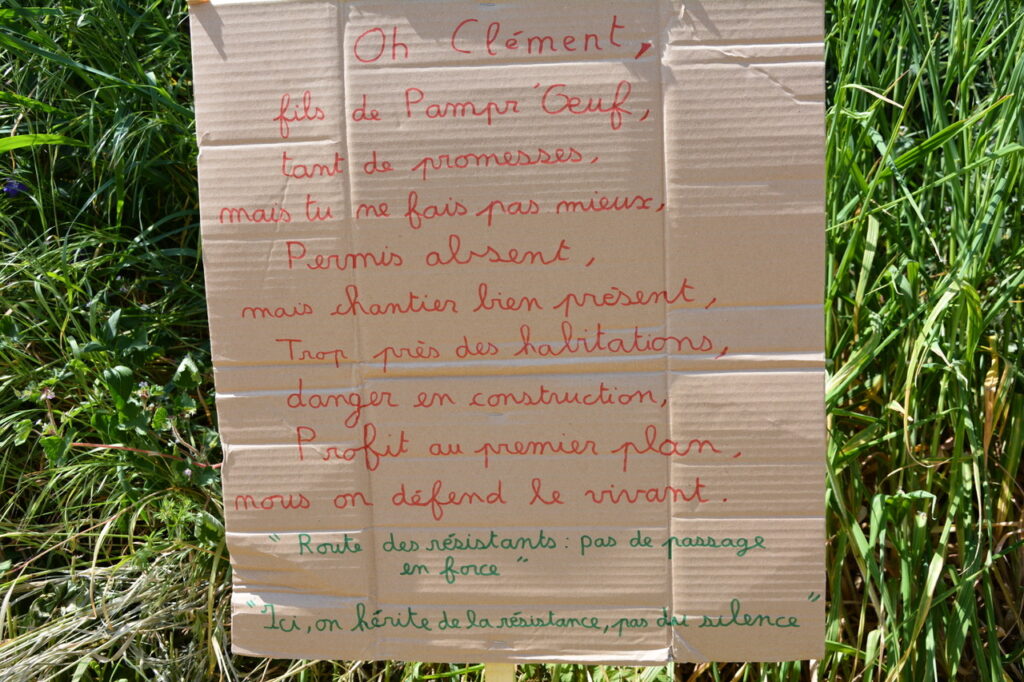 Oh Clément,
fils de Pampr'Œuf,
tant de promesses,
mais tu ne fais pas mieux,
Permis absent,
mais chantier bien présent,
Trop près des habitations,
danger en construction,
Profit au premier plan,
nous on défend le vivant.
"Route des résistants : pas de passage
en force"
"Ici, on hérite de la résistance, pas du silence"